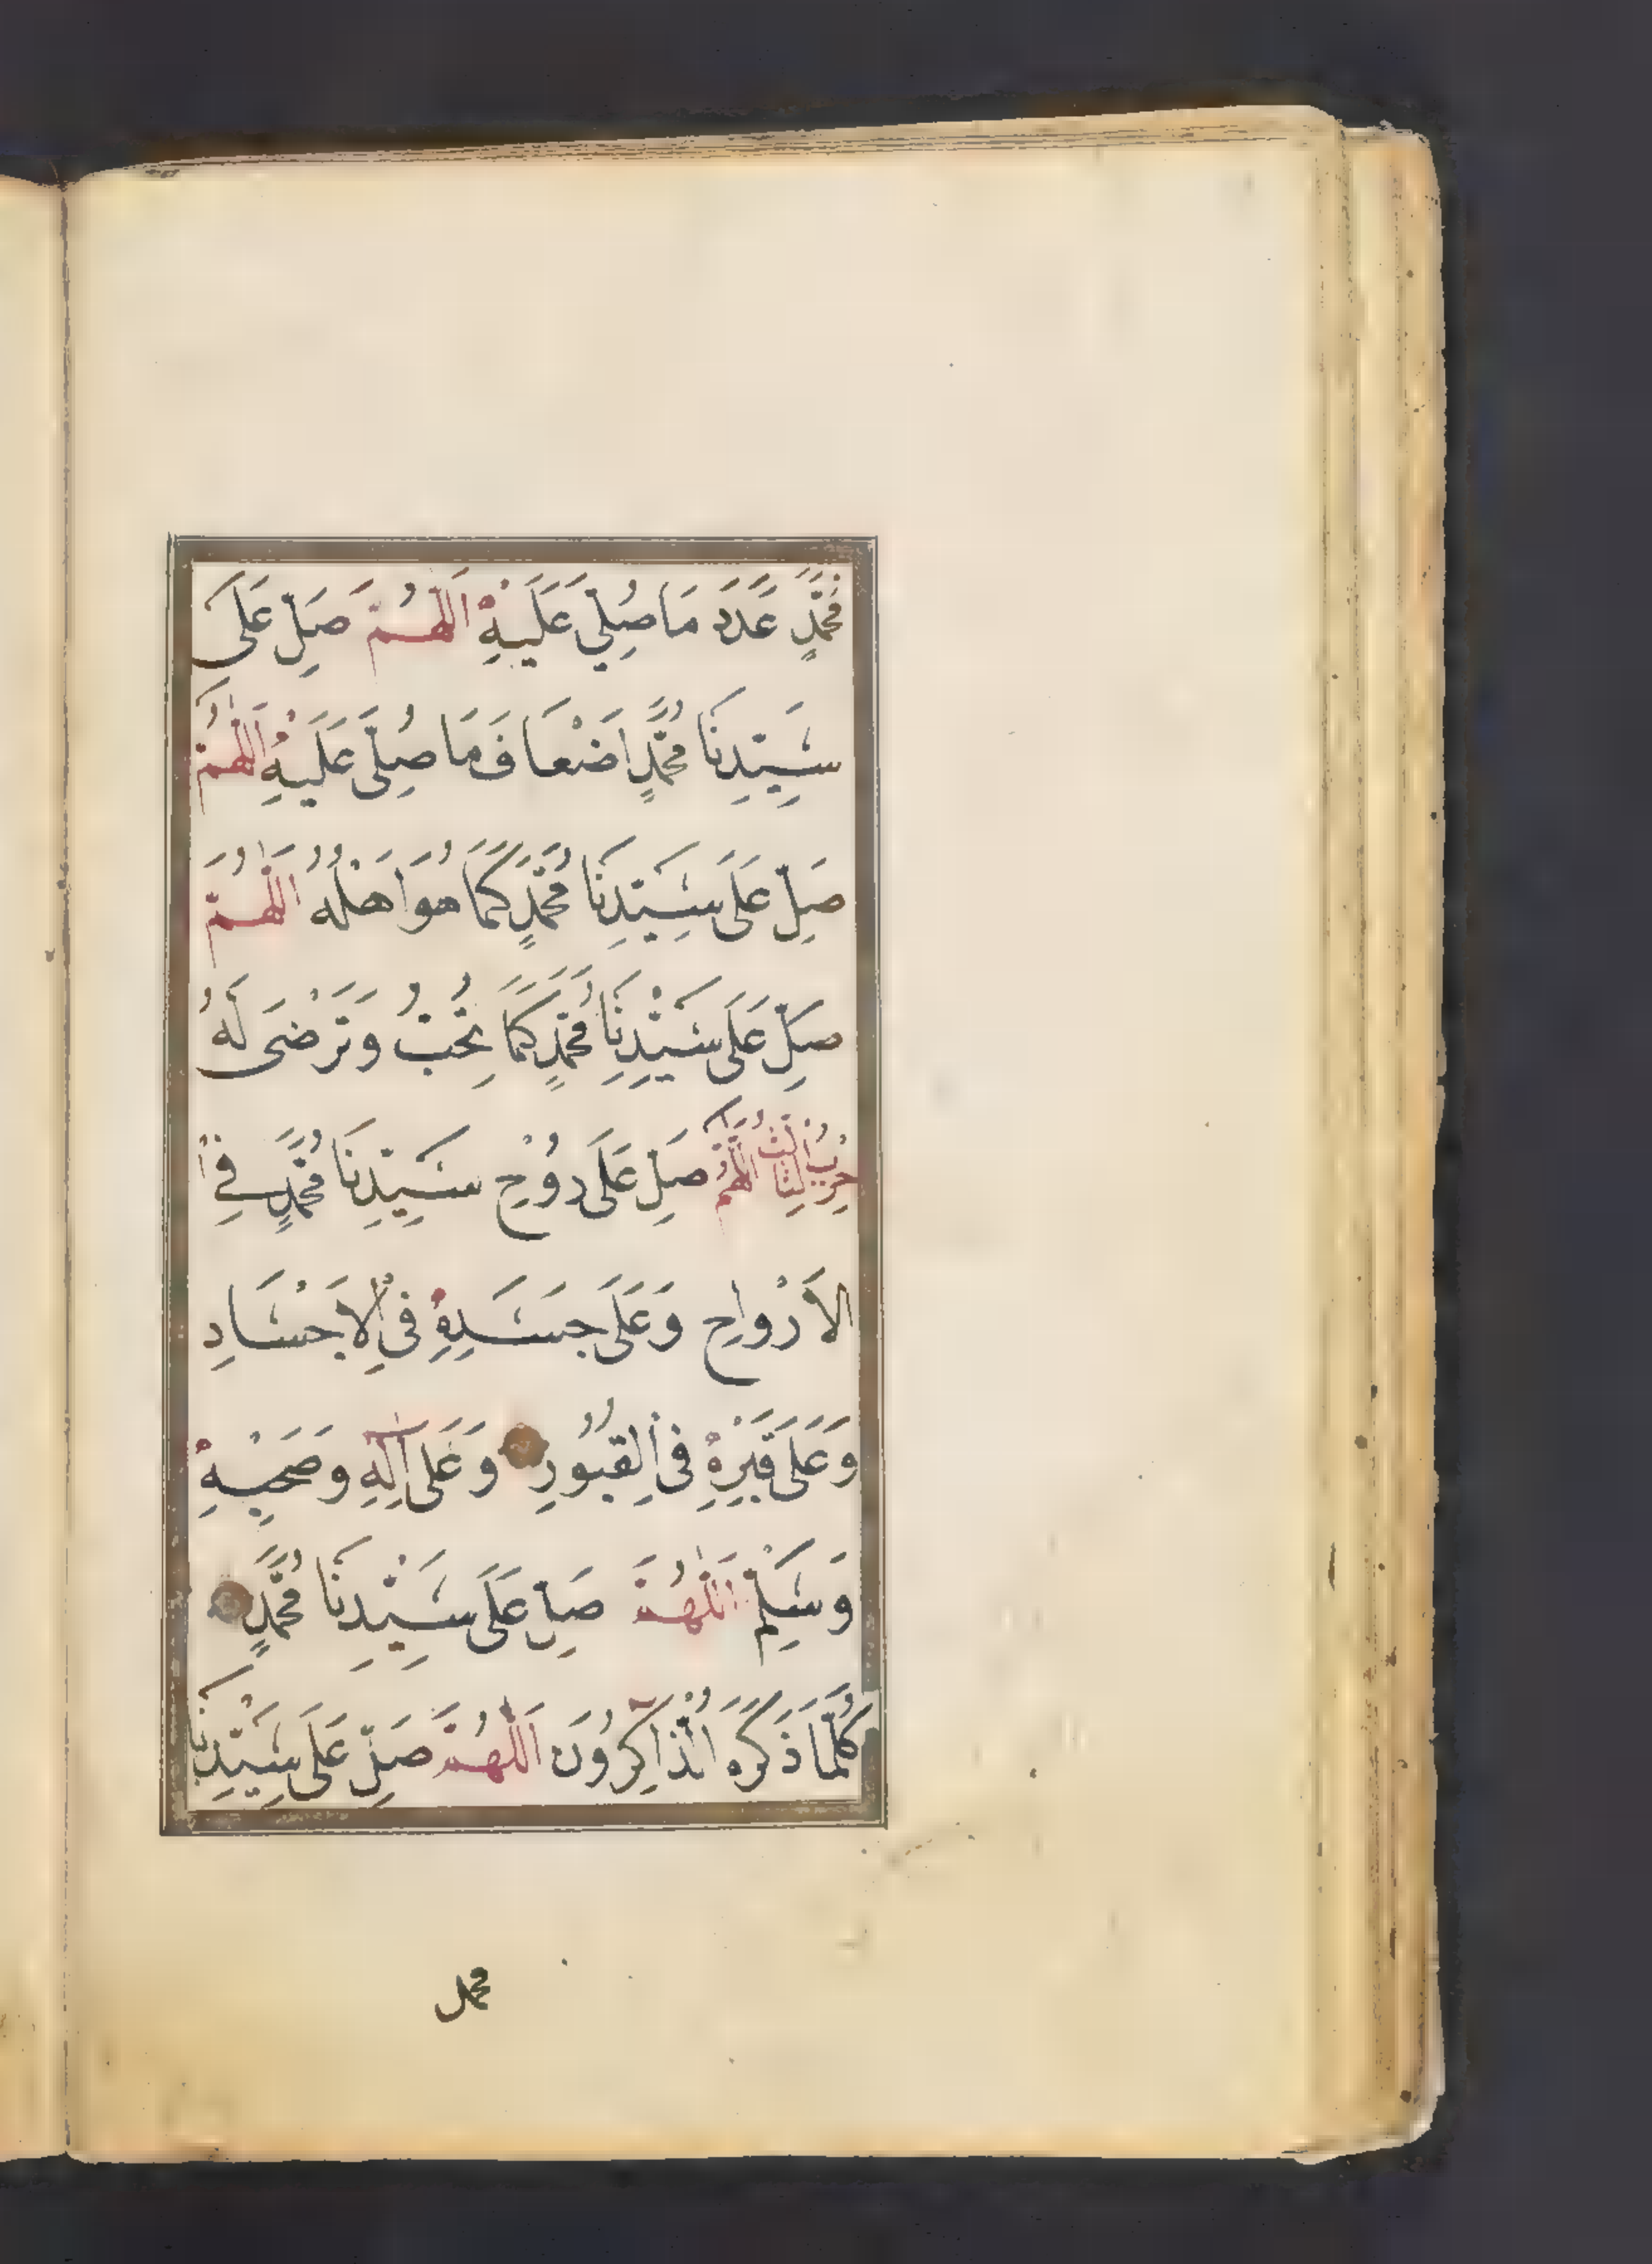 مُحَمَّدٍ عَدَدَ مَا صُلِّيَ عَلَيْهِ اَللّٰهُمَّ صَلِّ عَلَى
سَيِّدِنَا مُحَمَّدٍ اَضْعَافَ مَا صُلِّىَ عَلَيْهِ اَللّٰهُمَّ
صَلِّ عَلَى سَيِّدِنَا مُحَمَّدٍ كَمَا هُوَ اَهْلُهُ اَللّٰهُمَّ
صَلِّ عَلَى سَيِّدِنَا مُحَمَّدٍ كَمَا تُحِبُّ وَتَرْضَى لَهُ
حِزْبُ الثَّالِثُ اَللّٰهُمَّ صَلِّ عَلَى رُوْحِ سَيِّدِنَا مُحَمَّدٍ فِي
الْاَرْوَاحِ وَعَلَى جَسَدِهِ فِى الْاَجْسَادِ
وَعَلَى قَبْرِهِ فِى الْقُبُورِ وَعَلَى اٰلِهِ وَصَحْبِهِ
وَسَلِّمْ اَللّٰهُمَّ صَلِّ عَلَى سَيِّدِنَا مُحَمَّدٍ
كُلَّمَا ذَكَرَهُ الذَّاكِرُونَ اَللّٰهُمَّ صَلِّ عَلَى سَيِّدِنَا
محمد